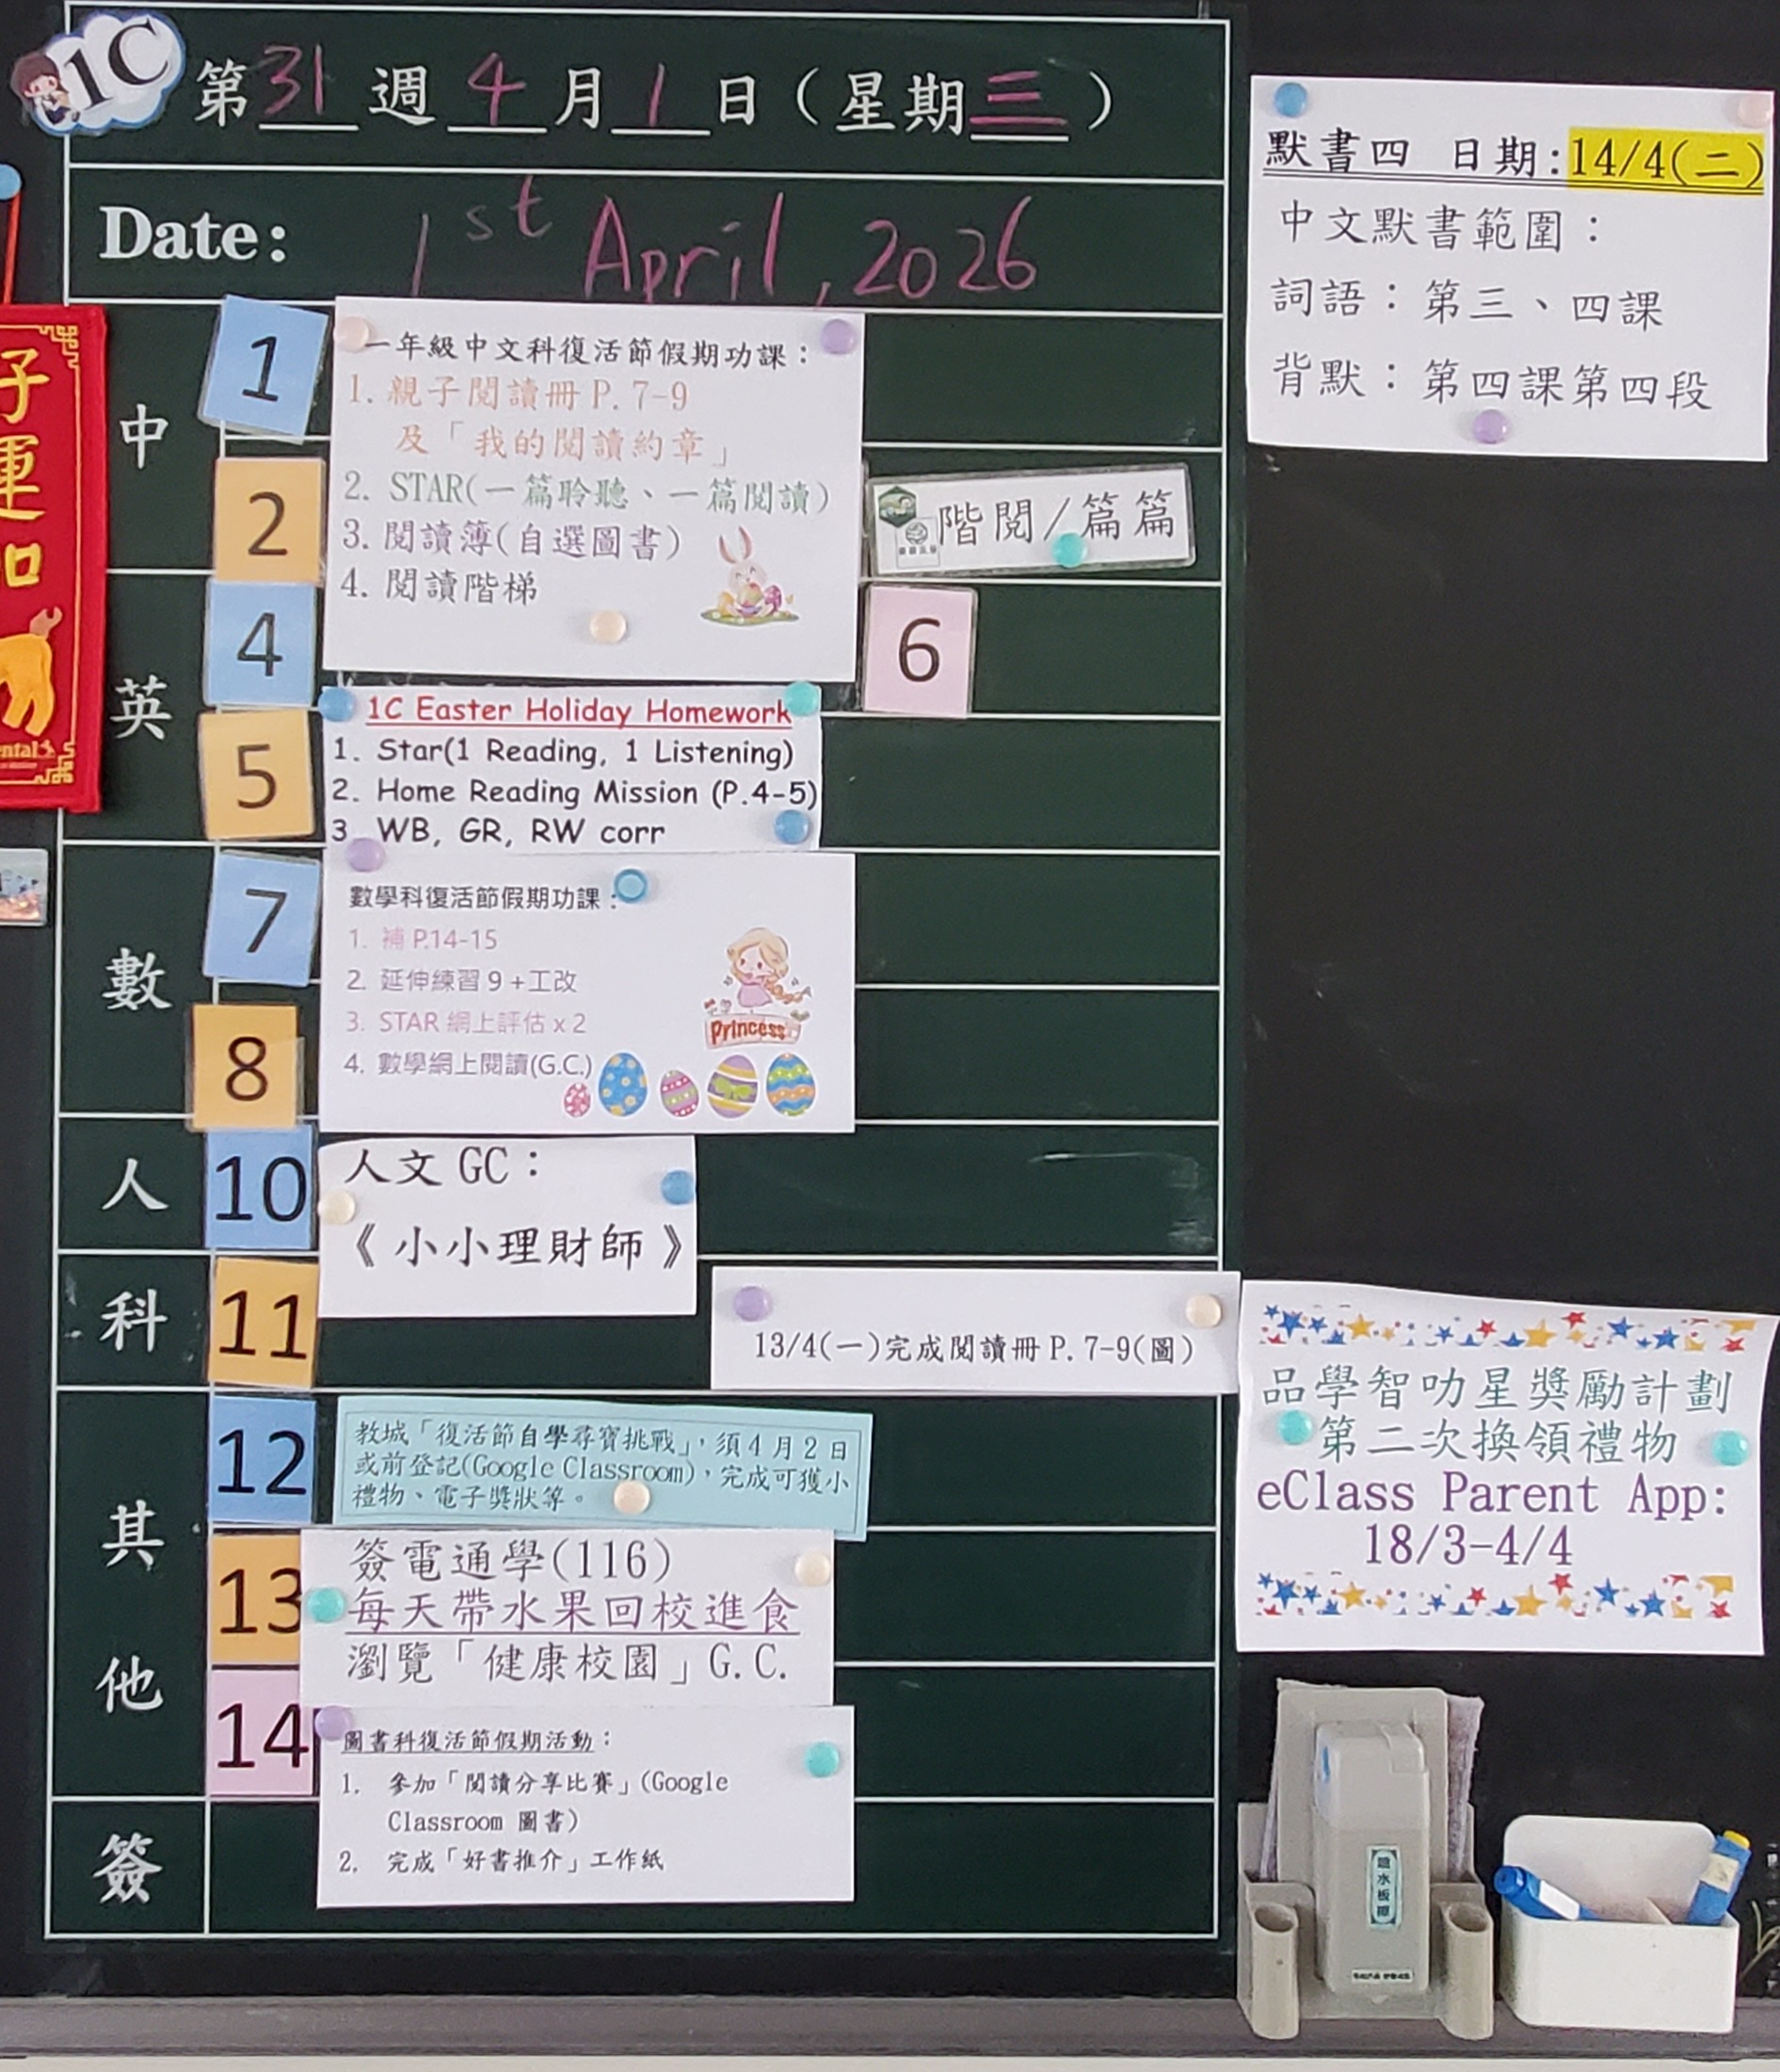 1C
第31週4月1日(星期三)
Date: 1st April, 2026
中
1
2
一年級中文科復活節假期功課：
1. 親子閱讀冊 P. 7-9
及「我的閱讀約章」
2. STAR(一篇聆聽、一篇閱讀)
3. 閱讀簿(自選圖書)
4. 閱讀階梯
階閱/篇篇
英
4
5
6
1C Easter Holiday Homework
1. Star(1 Reading, 1 Listening)
2. Home Reading Mission (P.4-5)
3. WB, GR, RW corr
數
7
8
數學科復活節假期功課：
1. 補 P.14-15
2. 延伸練習 9 +工改
3. STAR 網上評估 x 2
4. 數學網上閱讀(G.C.)
Princess
人
10
人文 GC：
《小小理財師》
科
11
13/4(一)完成閱讀冊 P. 7-9(圖)
其他
12
教城「復活節自學尋寶挑戰」，須 4 月 2 日
或前登記(Google Classroom)，完成可獲小
禮物、電子獎狀等。
13
簽電通學(116)
每天帶水果回校進食
瀏覽「健康校園」G.C.
14
圖書科復活節假期活動：
1. 參加「閱讀分享比賽」(Google
Classroom 圖書)
2. 完成「好書推介」工作紙
簽
默書四 日期:14/4(二)
中文默書範圍：
詞語：第三、四課
背默：第四課第四段
品學智叻星獎勵計劃
第二次換領禮物
eClass Parent App:
18/3-4/4